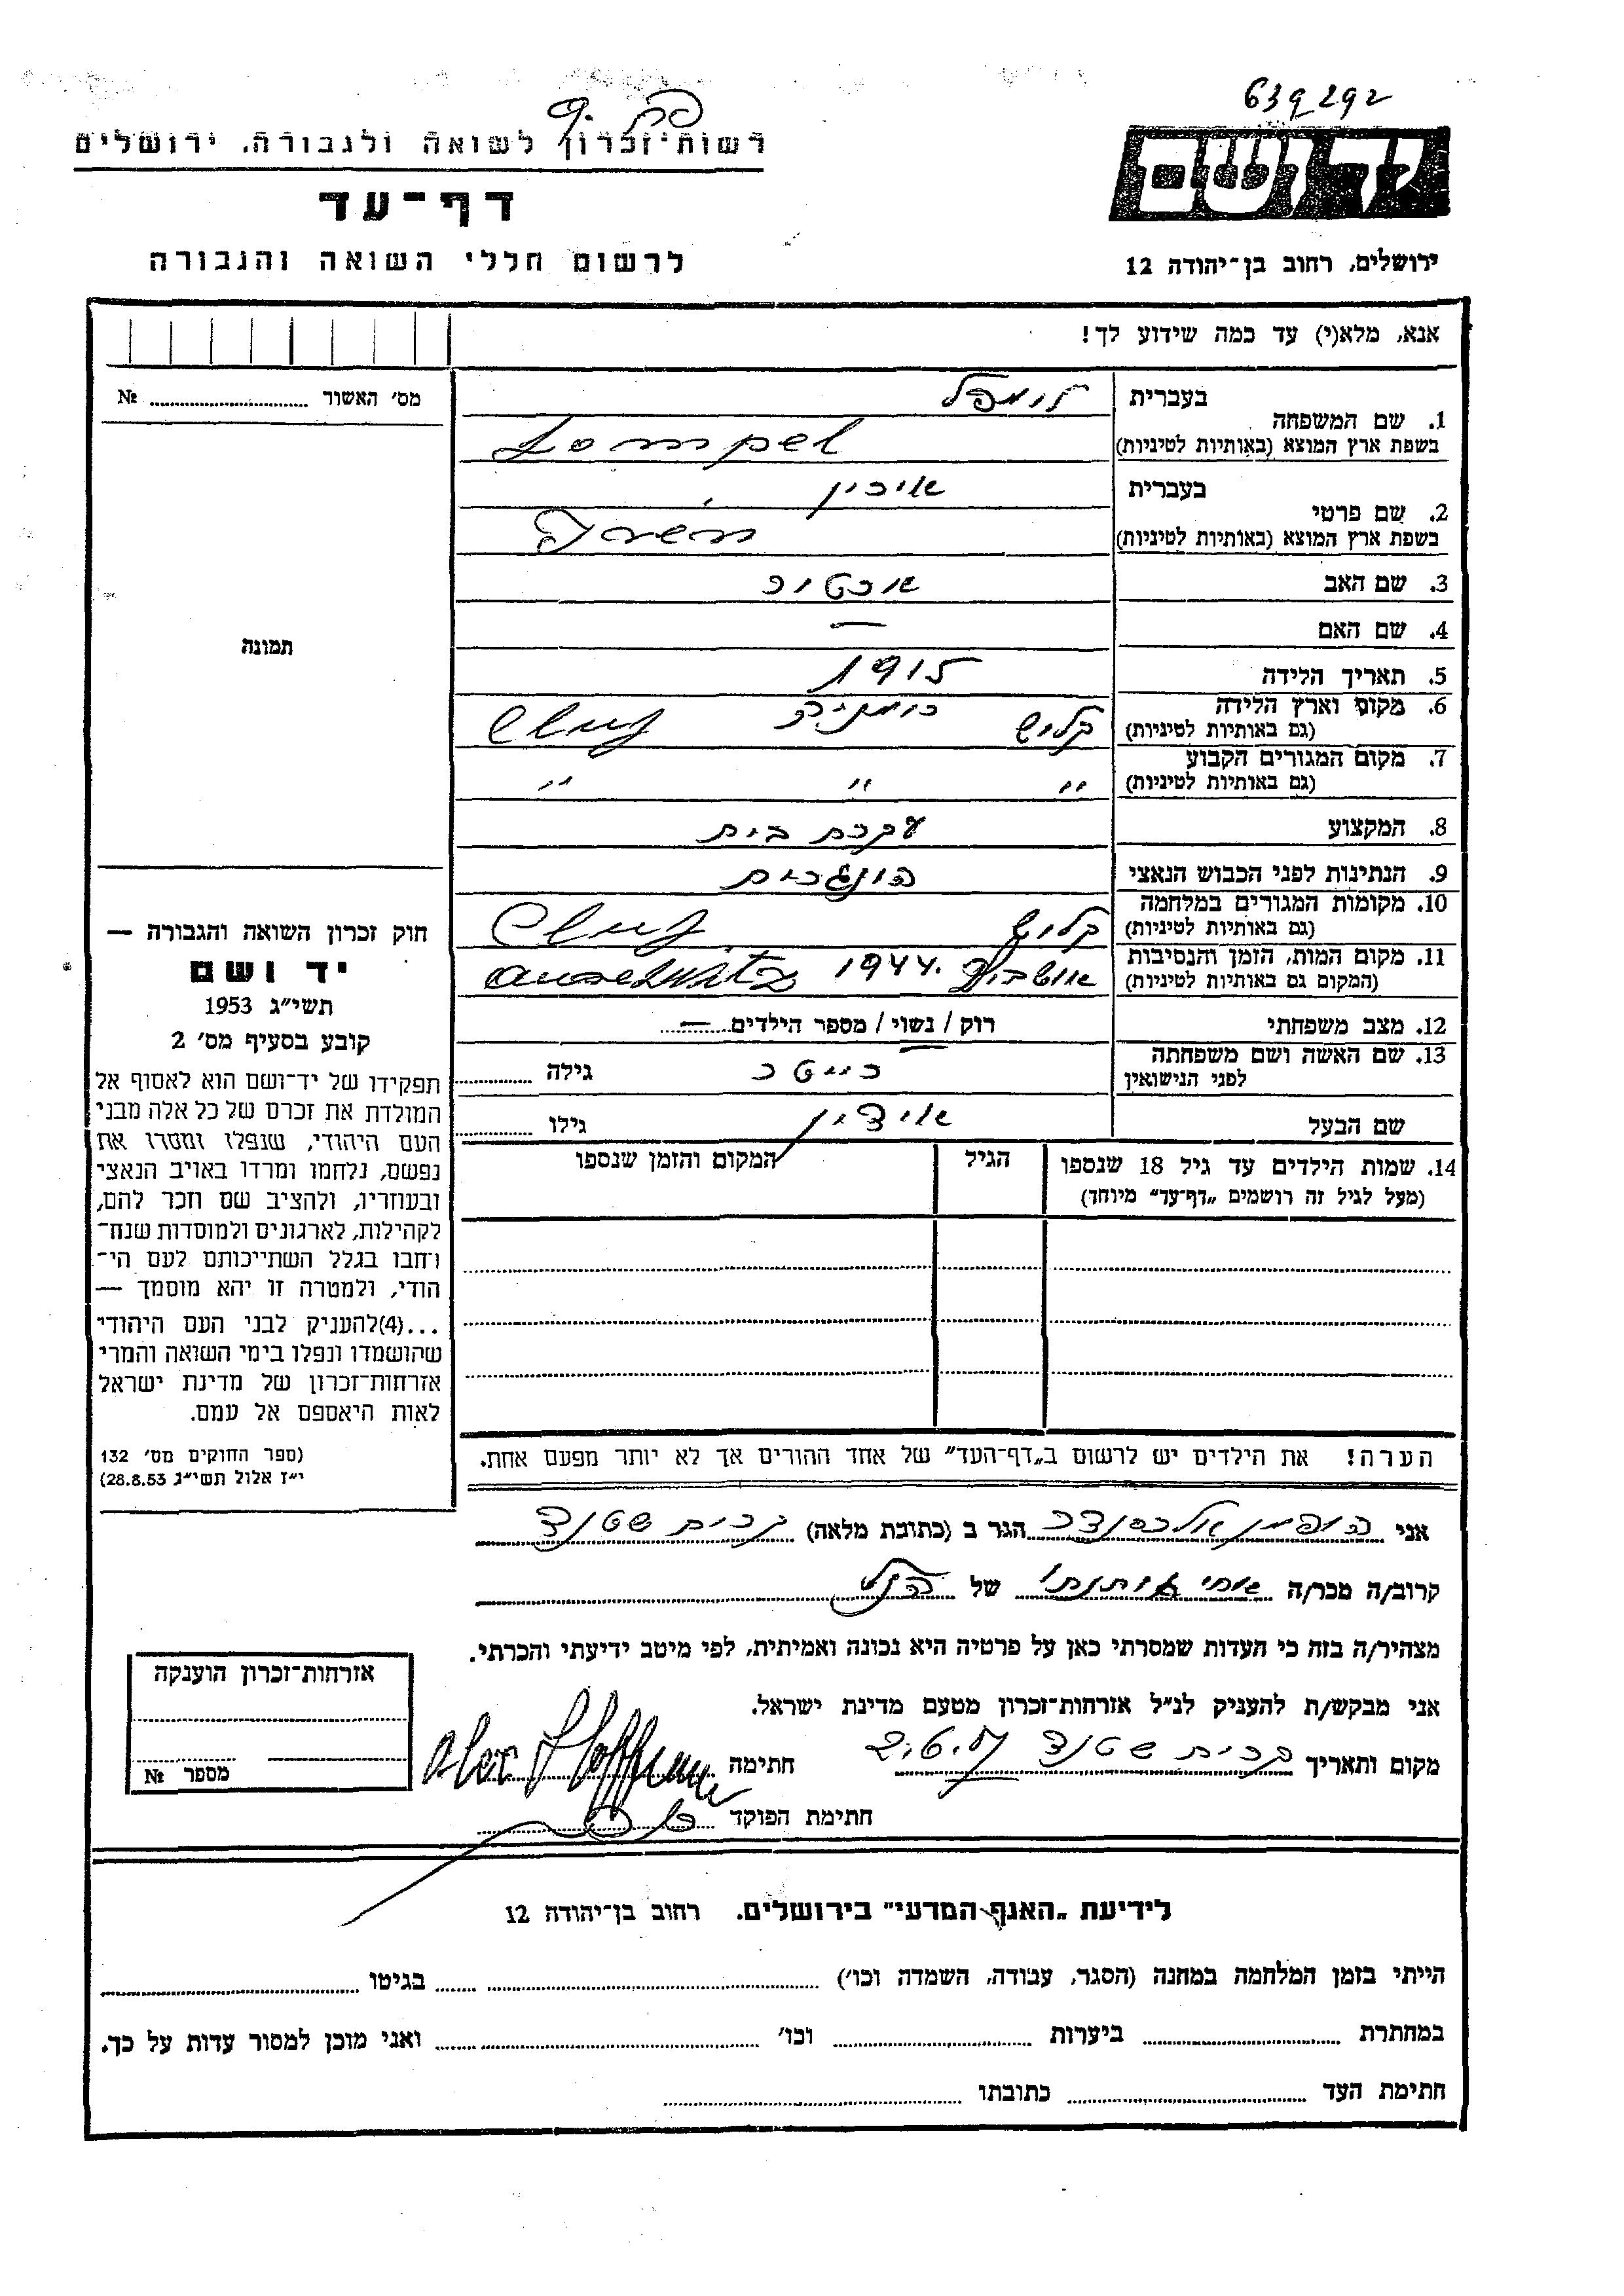 639292
רשות־זכרון לשואה ולגבורה, ירושלים
דף־עד
לרשום חללי השואה והגבורה
יד ושם
ירושלים, רחוב בן־יהודה 12
אנא, מלא(י) עד כמה שידוע לך!
מס׳ האשור № 
תמונה
1. שם המשפחה
בעברית לומפל
בשפת ארץ המוצא (באותיות לטיניות) Lompel
2. שם פרטי
בעברית אירין
בשפת ארץ המוצא (באותיות לטיניות) Irén
3. שם האב ארטור
4. שם האם —
5. תאריך הלידה 1915
6. מקום וארץ הלידה קלוש רומניה Cluj
(גם באותיות לטיניות)
7. מקום המגורים הקבוע " " "
(גם באותיות לטיניות)
8. המקצוע עקרת בית
9. הנתינות לפני הכבוש הנאצי הונגרית
10. מקומות המגורים במלחמה קלוש Cluj
(גם באותיות לטיניות)
11. מקום המות, הזמן והנסיבות 1944
(המקום גם באותיות לטיניות)
12. מצב משפחתי רוק / נשוי / מספר הילדים —
13. שם האשה ושם משפחתה
לפני הנישואין גילה
שם הבעל גילו
14. שמות הילדים עד גיל 18 שנספו הגיל המקום והזמן שנספו
(מעל לגיל זה רושמים „דף־עד״ מיוחד)
הערה! את הילדים יש לרשום ב„דף־העד״ של אחד ההורים אך לא יותר מפעם אחת.
חוק זכרון השואה והגבורה —
יד ושם
תשי״ג 1953
קובע בסעיף מס׳ 2
תפקידו של יד־ושם הוא לאסוף אל
המולדת את זכרם של כל אלה מבני
העם היהודי, שנפלו ומסרו את
נפשם, נלחמו ומרדו באויב הנאצי
ובעוזריו, ולהציב שם וזכר להם,
לקהילות, לארגונים ולמוסדות שנח־
רחבו בגלל השתייכותם לעם הי־
הודי, ולמטרה זו יהא מוסמך —
...(4)להעניק לבני העם היהודי
שהושמדו ונפלו בימי השואה והמרי
אזרחות־זכרון של מדינת ישראל
לאות היאספם אל עמם.
(ספר החוקים מס׳ 132
י״ז אלול תשי״ג 28.8.53)
אני הופמן אלכסנדר הגר ב (כתובת מלאה) קרית שטנד
קרוב/ה מכר/ה של הנ״ל
מצהיר/ה בזה כי העדות שמסרתי כאן על פרטיה היא נכונה ואמיתית, לפי מיטב ידיעתי והכרתי.
אני מבקש/ת להעניק לנ״ל אזרחות־זכרון מטעם מדינת ישראל.
מקום ותאריך קרית שטנד חתימה Alex Hoffman
חתימת הפוקד
אזרחות־זכרון הוענקה
מספר №
לידיעת „האגף המדעי״ בירושלים, רחוב בן־יהודה 12
הייתי בזמן המלחמה במחנה (הסגר, עבודה, השמדה וכו׳) בגיטו
במחתרת ביערות וכו׳ ואני מוכן למסור עדות על כך.
חתימת העד כתובתו